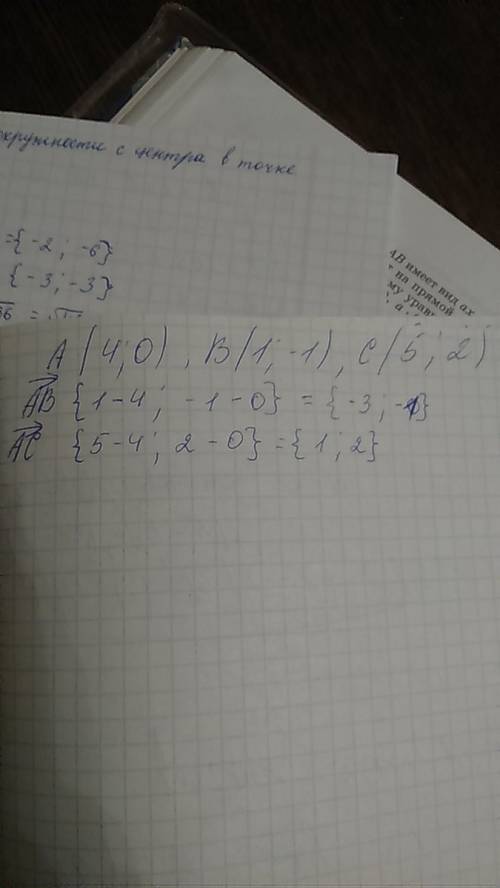 окружности с центра в точке
={-2; -6}
{-3; -3}
AB имеет вид ax
на прямой
му уравн
A(4;0), B(1;-1), C(5;2)
AB {1-4; -1-0} = {-3; -1}
AC {5-4; 2-0} = {1; 2}